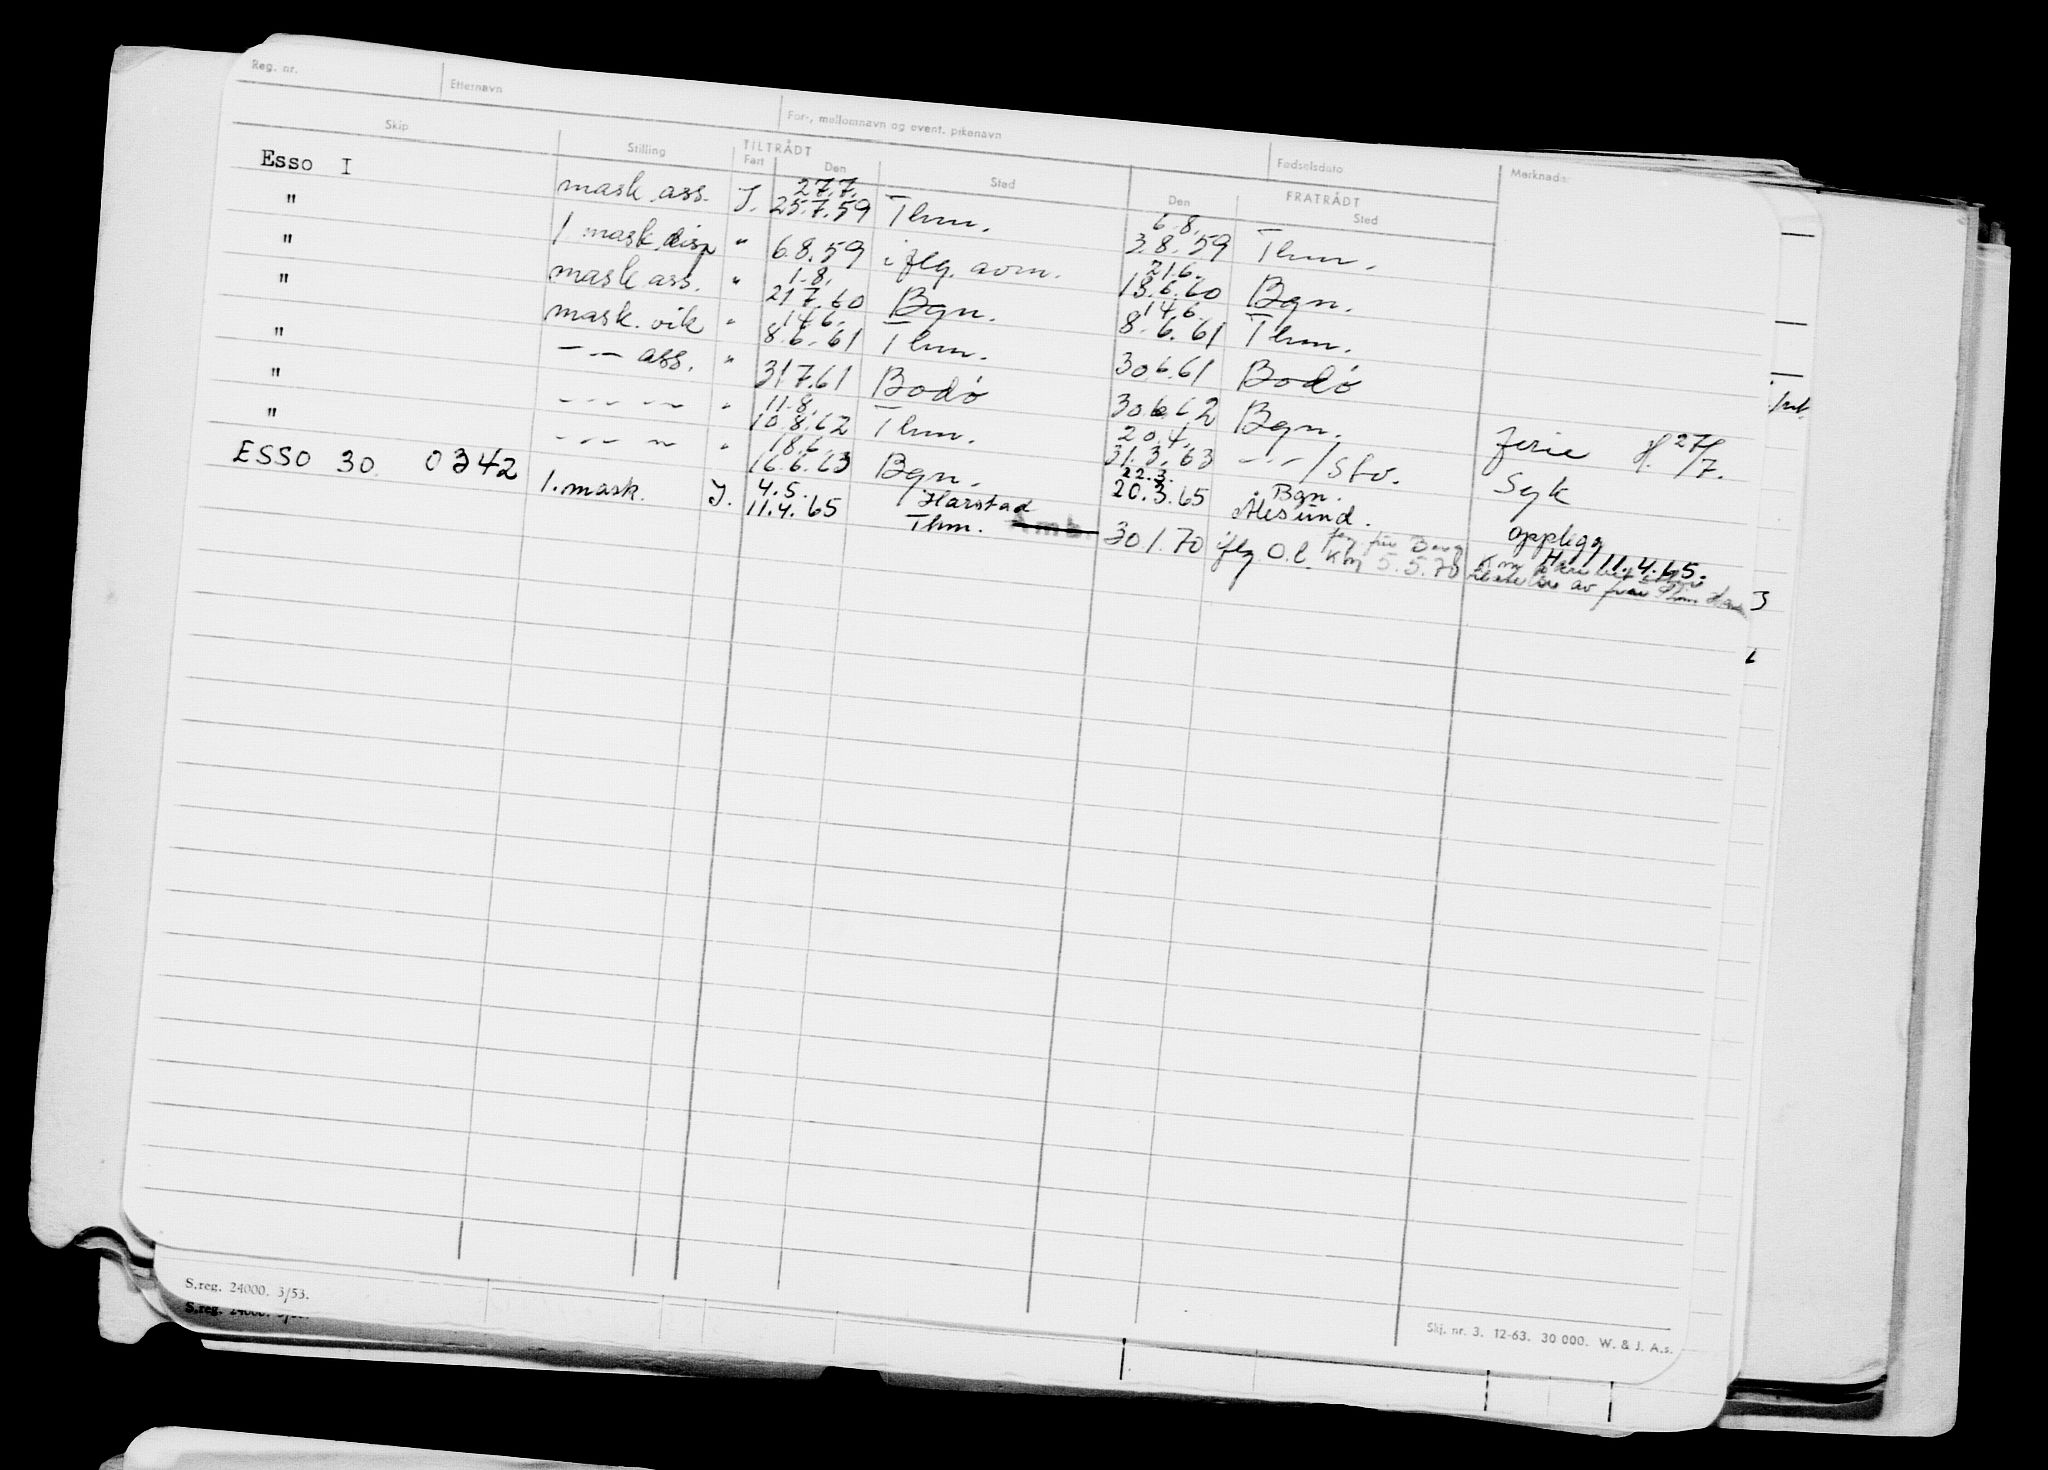 Reg. nr. Etternavn For-, mellomnavn og event. pikenavn Fødselsdato Merknader
Skip Stilling TILTRÅDT FRATRÅDT
Fart Den Sted Den Sted
Esso I mask. ass. J. 27.7. 25.7.59 Thm. 6.8. 3.8.59 Thm.
" 1 mask. disp " 6.8.59 iflg. avm. 21.6. 18.6.60 Bgn.
" mask ass. " 1.8. 21 7.60 Bgn. 14.6. 8.6.61 Thm.
" mask. vik " 14.6. 8.6.61 Thm. 30 6.61 Bodø
" — — ass. " 31 7.61 Bodø 30.6.62 Bgn. ferie 27/7.
" — — — " 11.8. 10.8.62 Thm. 20.4. 31.3.63 — — / Stv. Syk
" — — — " 18.6. 16.6.63 Bgn. 22.3. 20.3.65 Bgn. Ålesund. opplegg
ESSO 30. 0342 1. mask. J. 4.5. 11.4.65 Harstad Thm. 30 1.70 iflg O.l. Kbg 5.5.70 11.4.65.
S.reg. 24000. 3/53.
Skj. nr. 3. 12-63. 30 000. W. & J. A.s.